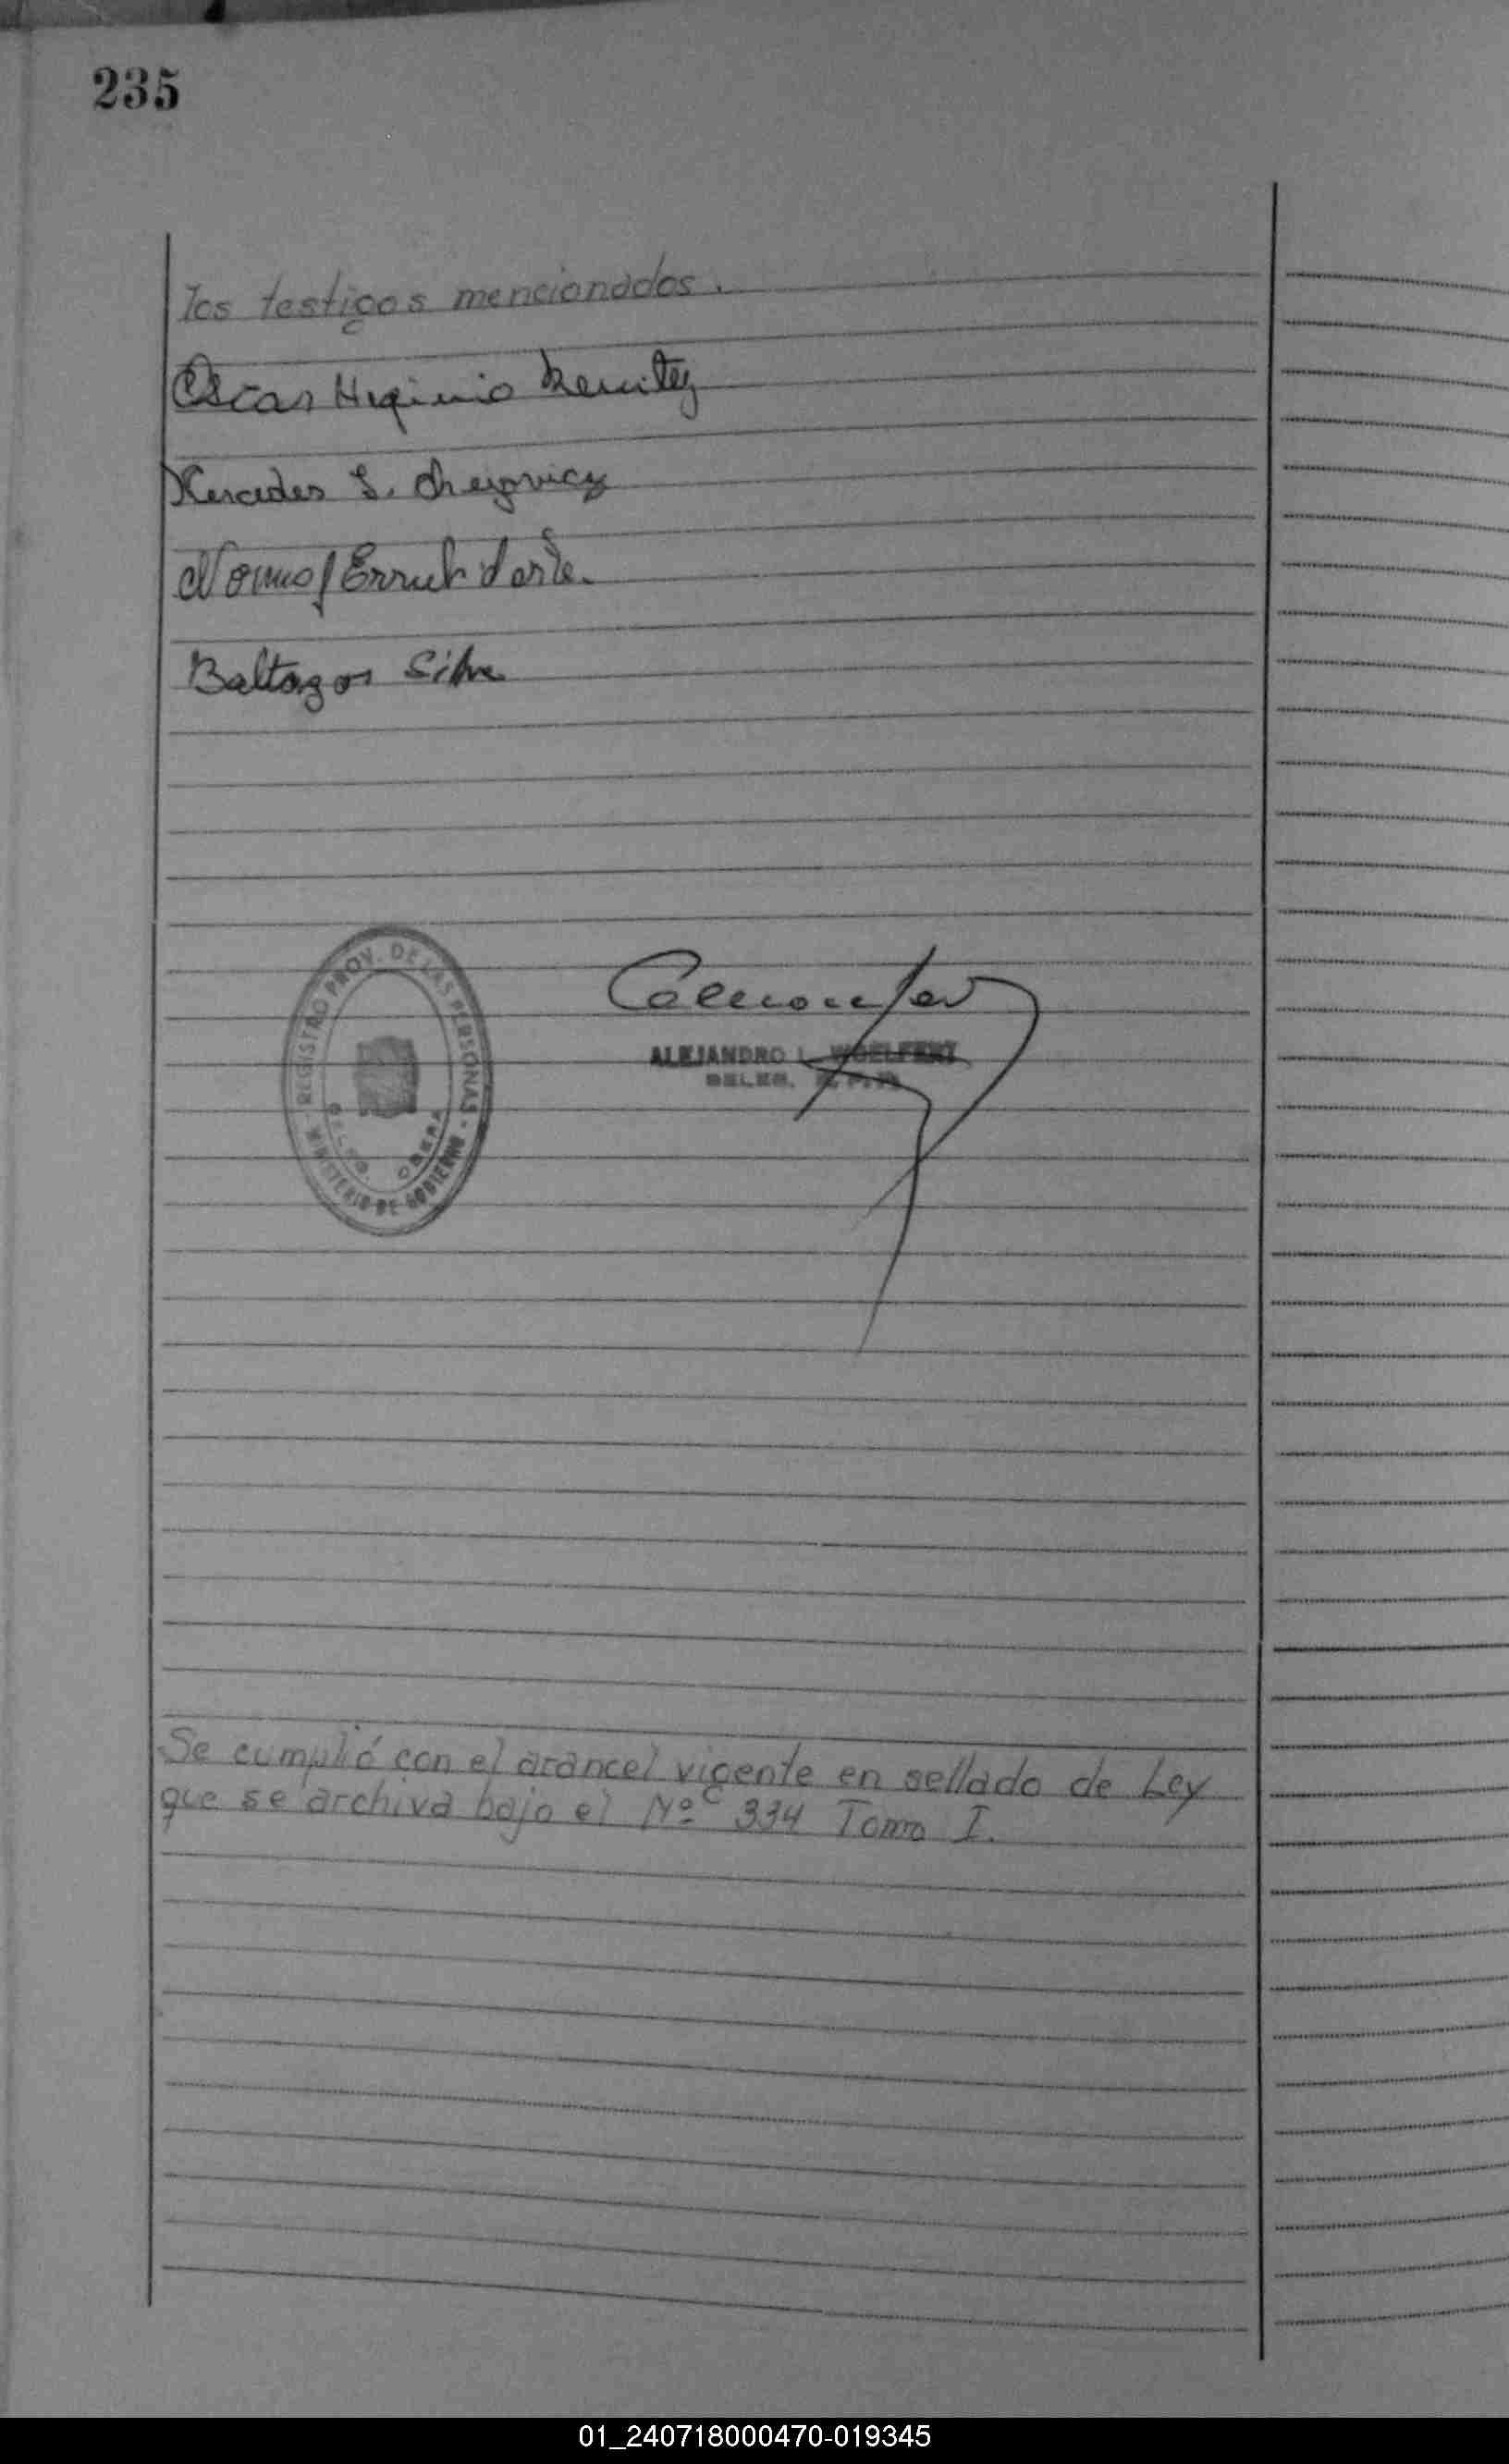 235
los testigos mencionados.
Oscar Higinio Benitez
Mercedes S.
Baltazar Silva
REGISTRO PROV. DE LAS PERSONAS - MINISTERIO DE GOBIERNO
DELEG. OBERA
ALEJANDRO L. WOELFERT
DELEG. R. P. P.
Se cumplió con el arancel vigente en sellado de Ley
que se archiva bajo el Nº 334 Tomo I.
01_240718000470-019345